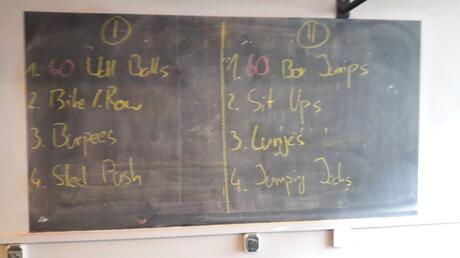 I
1. 60 Wall Balls
2. Bike/Row
3. Burpees
4. Sled Push
II
1. 60 Box Jumps
2. Sit Ups
3. Lunges
4. Jumping Jacks